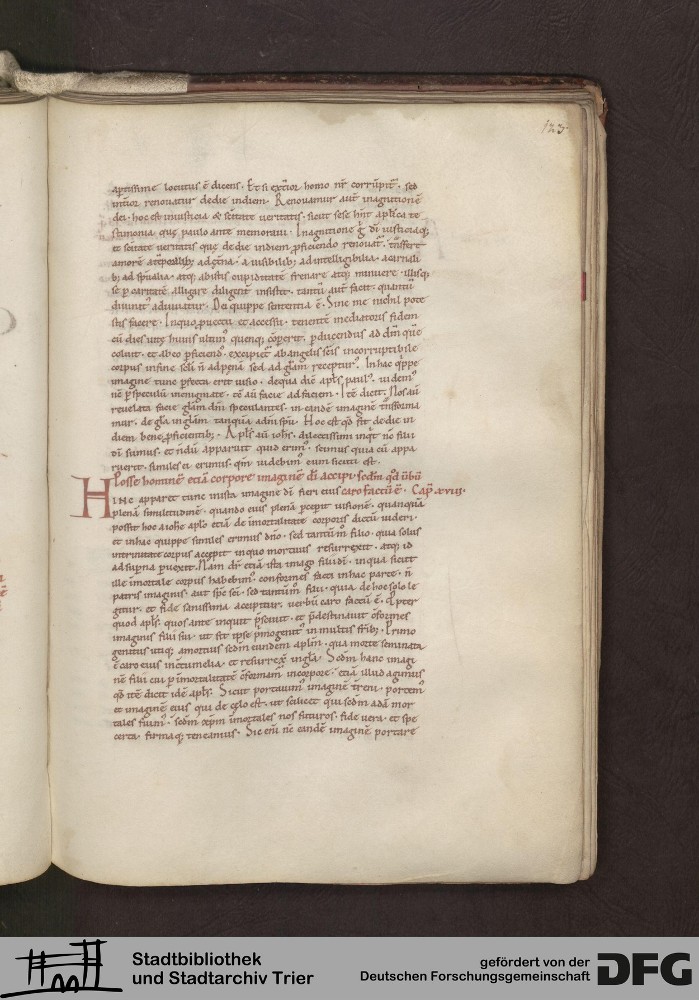 123
aptissime locutus ē dicens. Et si exterior homo nr̄ corrūpit᷒. sed
interior renovatur de die in diem. Renovamur aut̄ in agnitionē
dei. hoc est in iusticia & sc̄itate veritatis. sicut sese hn̄t apl̄ica te
stimonia quę paulo ante memoravi. In agnitione g̊ dī iusticiaq;
et sc̄itate veritatis que de die in diem p̄ficiendo renovat᷒. tn̄sfert
amorē a tēporalib; ad ęt̄na. a visibilib; ad intelligibilia. a carnali
b; ad sp̄ualia. atq; ab istis cupiditatē frenare atq; minuere. illisq;
se p caritatē alligare diligent̄ insistit. tantū aut̄ facit. quantū
divinit᷒ adiuvatur. Dei quippe sententia ē. Sine me nichil pote
stis facere. In quo p̄vectu et accessu. tenentē mediatoris fidem
cū dies vitę huius ultim᷒ quenq; cōperit. p̄ducendus ad dm̄ quē
coluit. et ab eo p̄ficiend᷒. excipiet᷒ ab angelis sc̄is incorruptibile
corpus in fine sc̄li n̄ ad penā sed ad gl̄am receptur᷒. In hac q̄ppe
imagine tunc p̄fecta erit visio. de qua dic̄ apl̄s paul᷒. videm᷒
nc̄ p speculū in enigmate. tc̄ aū facie ad faciem. Itē dicit. Nos aū
revelata facie gl̄am dn̄i speculantes. in eandē imaginē tn̄sforma
mur. de gl̄a in gl̄am tanquā a dn̄i sp̄u. Hoc est qd̄ fit de die in
diem bene p̄ficientib;. Apl̄s aū ioh̄s. dilectissimi inq̇t nc̄ filii
dī sumus. et n̄dū apparuit quid erim᷒. scimus quia cū appa
ruerit. similes ei erimus. qm̄ videbim᷒ eum sicuti est.
Posse hominē etiā corpore imaginē dī accipi. scd̄m qd̄ ūbū
HINC apparet tunc in ista imagine dī fieri eius caro factū ē. Cap̄. xviii.
plenā similitudinē. quando eius plenā p̄cepit visionē. quanquā
possit hoc a iohe apl̄o etiā de īmortalitate corporis dictū videri.
et in hac quippe similes erimus dn̄o. sed tantūm᷒ filio. quia solus
in trinitate corpus accepit in quo mortuus resurrexit. atq; id
ad sup̄na p̄vexit. Nam dr̄ etiā ista imago filii dī. in qua sicut
ille īmortale corpus habebim᷒. conformes facti in hac parte. n̄
patris imaginis. aut sp̄c sc̄i. sed tantūm᷒ filii. quia de hoc solo le
gitur. et fide sanissima accipitur. verbū caro factū ē. Qd̄ p̄ter
quod apl̄s. quos ante inquit p̄scivit. et p̄destinavit cōformes
imaginis filii sui. ut sit ip̄se p̄mogenit᷒ in multis frīb;. Primo
genitus utiq; a mortuis scd̄m eundem apl̄m. qua morte seminata
ē caro eius in ctumelia. et resurrexit in gl̄a. Scd̄m hanc imagi
nē filii cui p īmortalitatē cōformam᷒ in corpore. etiā illud agimus
qd̄ itē dicit idē apl̄s. Sicut portavim᷒ imaginē t̄reni. portem᷒
et imaginē eius qui de cęlo est. ut scilicet qui scd̄m adā mor
tales fuim᷒. scd̄m xp̄m īmortales nos futuros. fide vera. et spe
certa. firmaq; teneamus. Sic eni nc̄ eandē imaginē portare
Stadtbibliothek
und Stadtarchiv Trier
gefördert von der
Deutschen Forschungsgemeinschaft
DFG